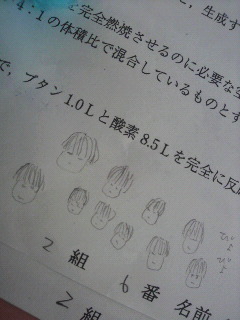 完全燃焼させるのに必要な空
と，生成す
4：1の体積比で混合しているものとす
で，ブタン1.0Lと酸素8.5Lを完全に反
ぴょ
ぴょ
2組 6番 名前
2組